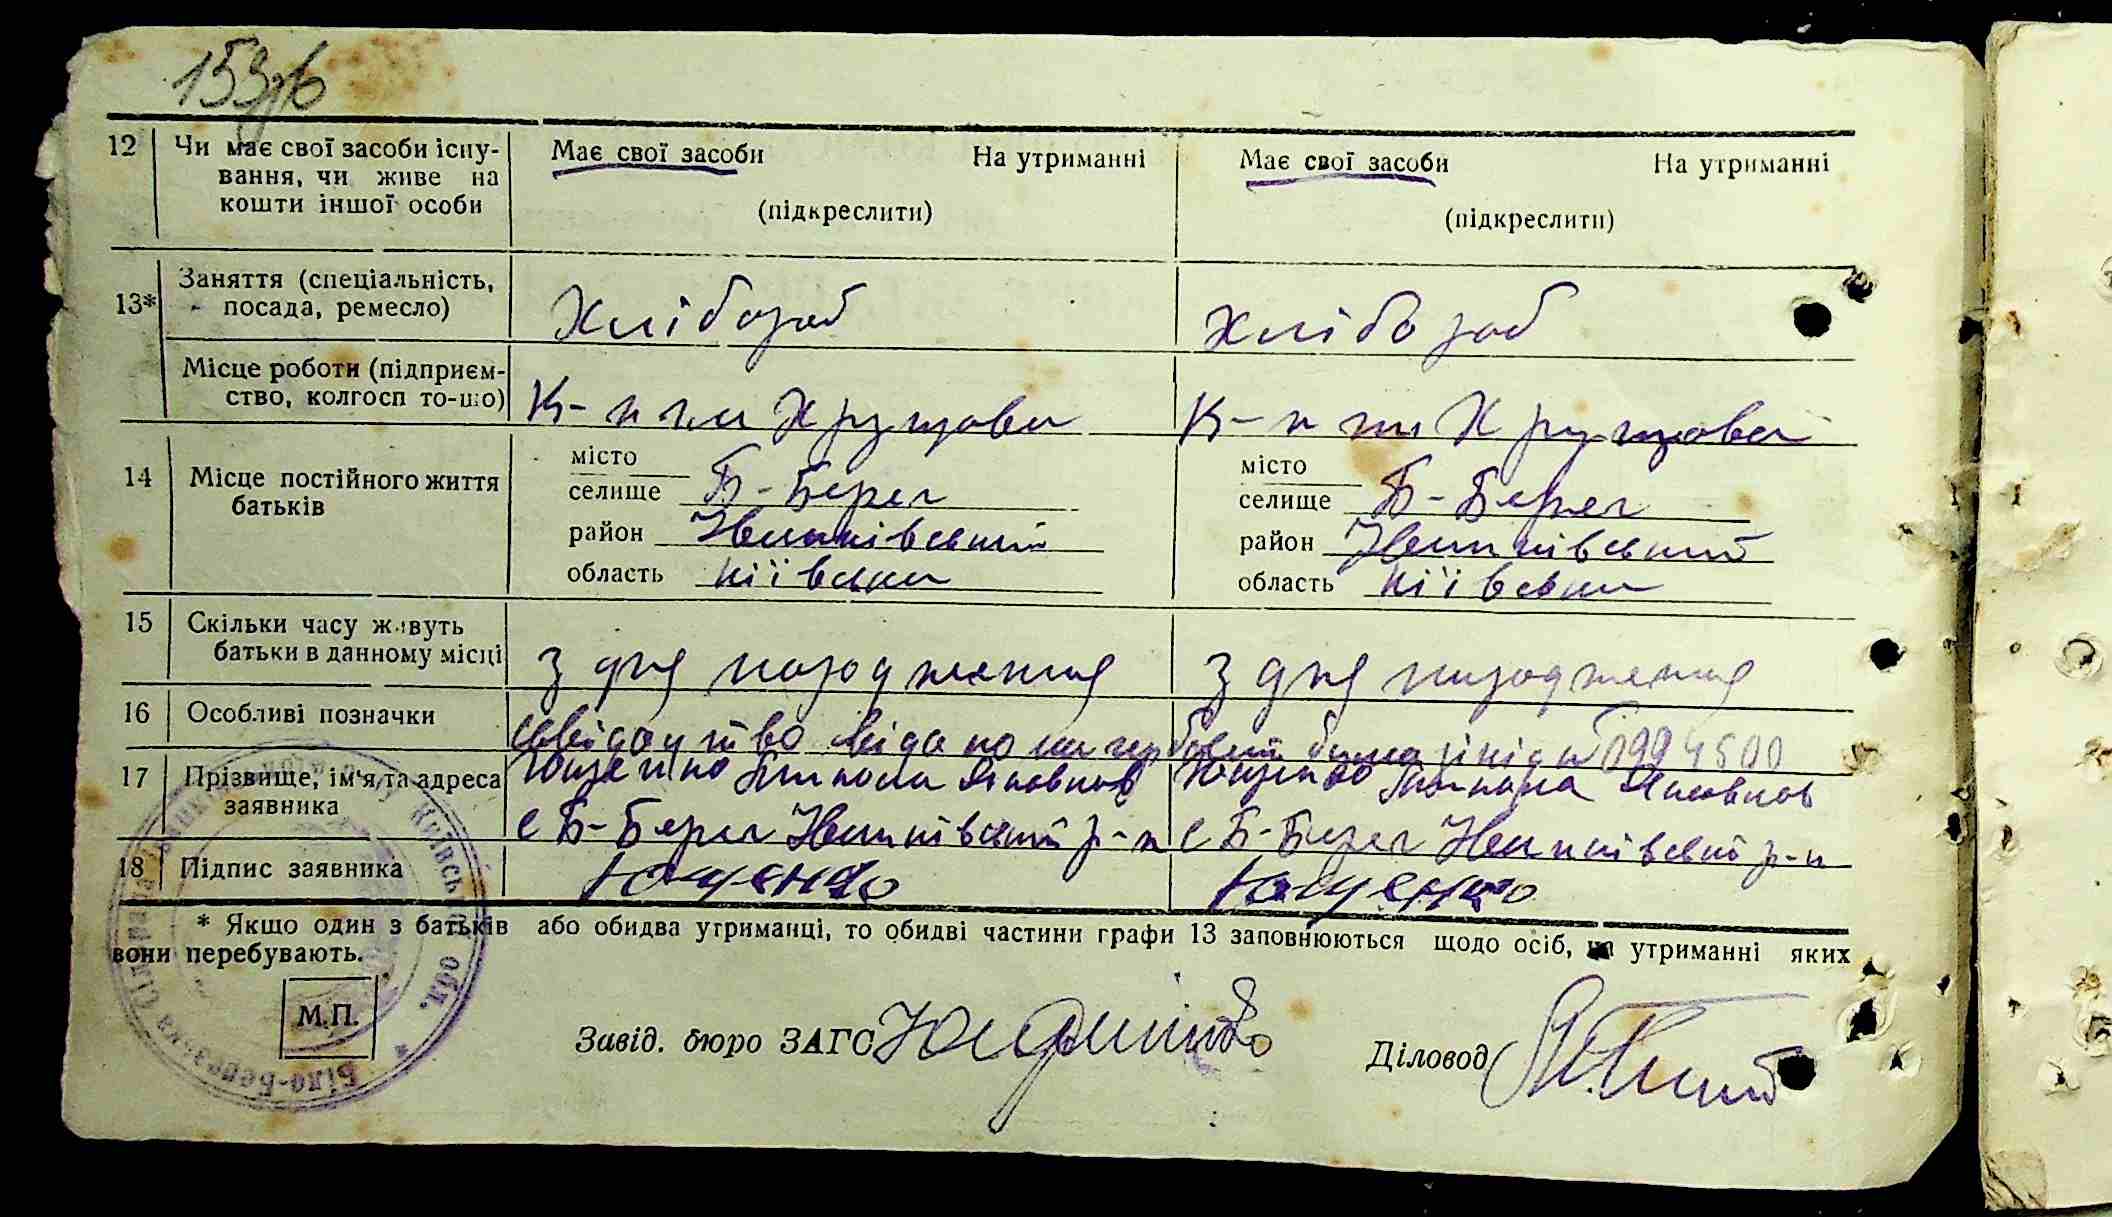 153зв
12 Чи має свої засоби існу- Має свої засоби На утриманні Має свої засоби На утриманні
вання, чи живе на
кошти іншої особи (підкреслити) (підкреслити)
13* Заняття (спеціальність, Хлібороб Хлібороб
посада, ремесло)
Місце роботи (підприєм- К-п ім Хрущова К-п ім Хрущова
ство, колгосп то-що)
14 Місце постійного життя місто місто
батьків селище Б-Берег селище Б-Берег
район район
область київська область київська
15 Скільки часу живуть
батьки в данному місці з дня народження з дня народження
16 Особливі позначки свідоцтво видано на гербовом бланкі 0994500
17 Прізвище, ім'я, та адреса Ющенко Яковнов Ющенко Яковнов
заявника с Б-Берег р-н с Б-Берег р-н
18 Підпис заявника Ющенко Ющенко
* Якщо один з батьків або обидва утриманці, то обидві частини графи 13 заповнюються щодо осіб, на утриманні яких
вони перебувають.
М.П.
Завід. бюро ЗАГС Діловод
Біло-Березька сільрада Київської обл.